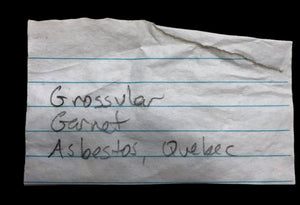 Grossular
Garnet
Asbestos, Quebec